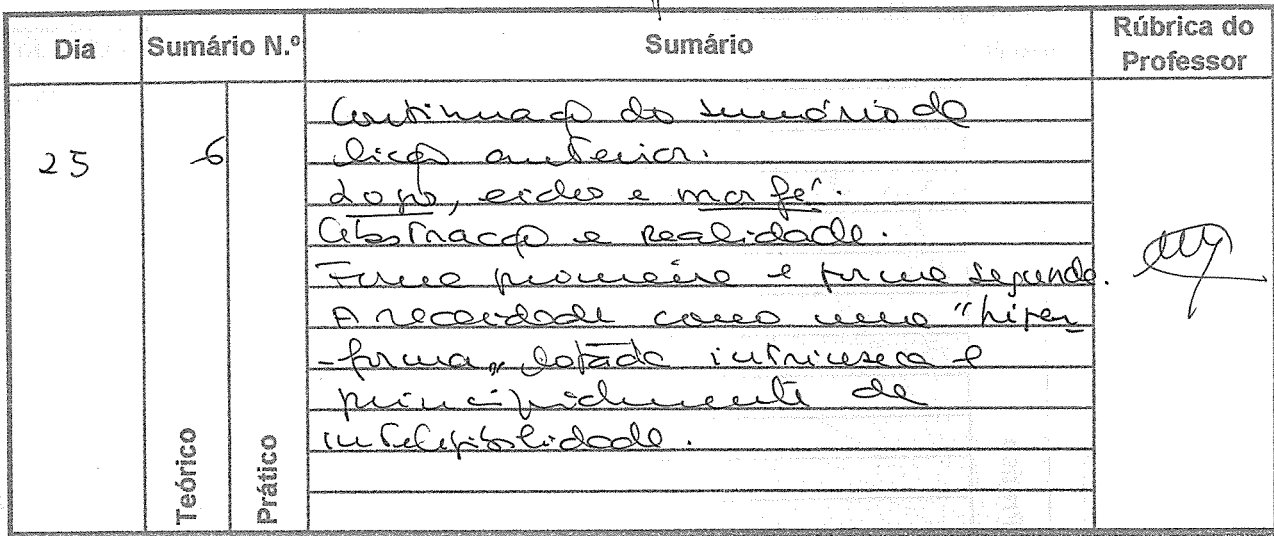 Dia Sumário N.º Sumário Rúbrica do Professor
25 6 Continuação do sumário da
lição anterior.
Logos, eidos e morfé.
Abstracção e realidade.
Forma primeira e forma segunda.
A realidade como uma "hiper
-forma" dotada intrínseca e
principialmente de
inteligibilidade.
Teórico
Prático